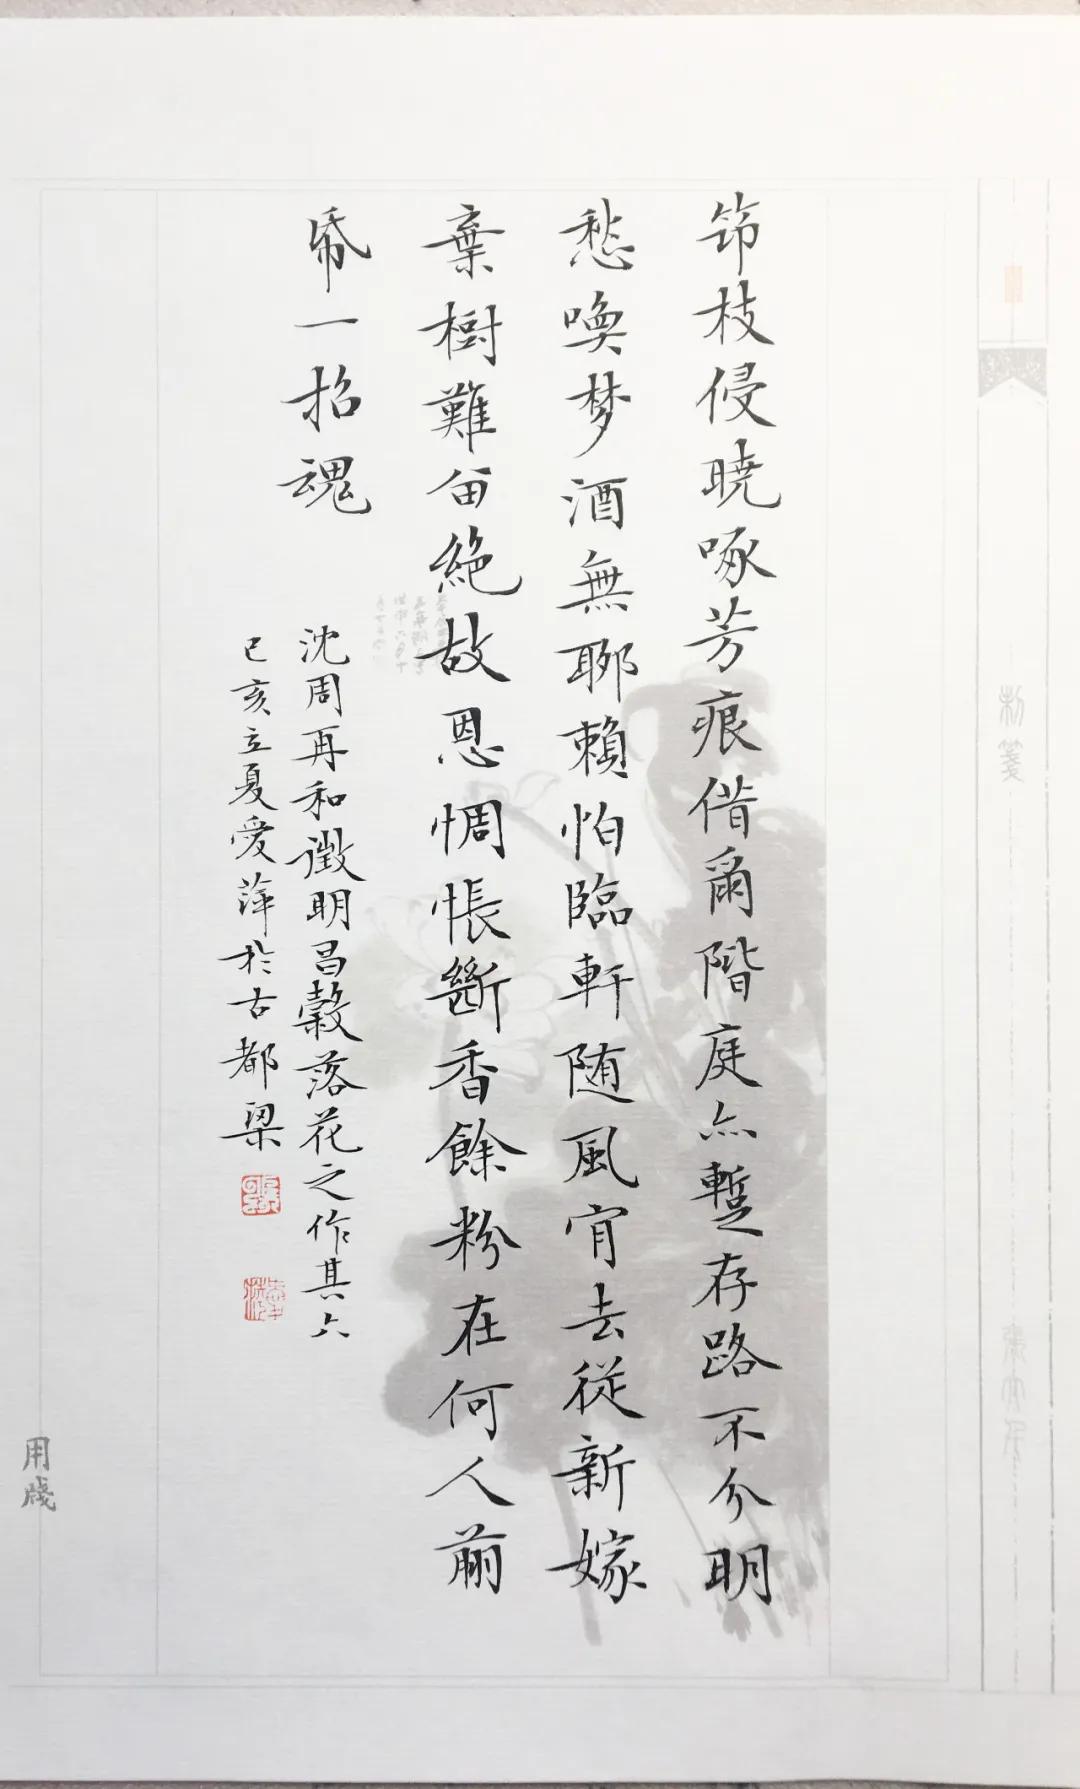 筇枝侵暁啄芳痕借爾階庭亦暫存路不分明
愁喚梦酒無聊賴怕臨軒随風肯去從新嫁
棄樹難留絶故恩惆悵斷香餘粉在何人翦
帋一招魂
沈周再和徵明昌穀落花之作其六
己亥立夏愛萍於古都梁
用牋